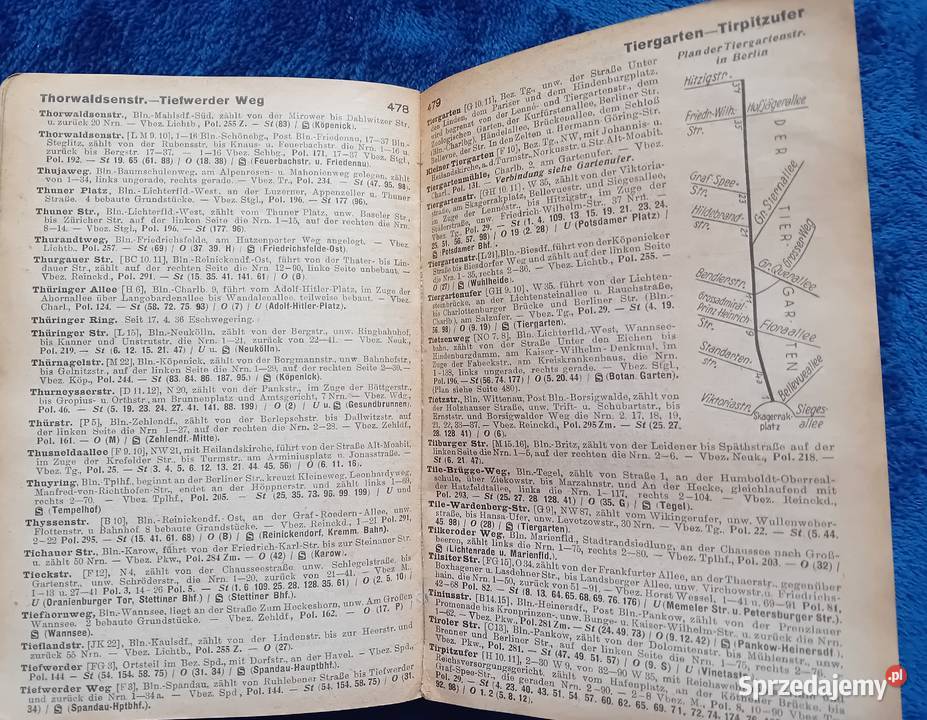 Thorwaldsenstr.—Tiefwerder Weg 478
Thorwaldsenstr., Bln.-Mahlsdf.-Süd, zählt von der Mirower bis Dahlwitzer Str.
u. zurück 20 Nrn. — Vbez. Lichtb., Pol. 255 Z. — St (83) / S (Köpenick).
Thorwaldsenstr. [L M 9, 10], 1—16 Bln.-Schönebg., Post Bln.-Friedenau, 17—37 Bln.-
Steglitz, zählt von der Rubensstr. bis Knaus- u. Feuerbachstr. die Nrn. 1—16 u.
zurück bis Bergstr. 17—37. — 1—16 Vbez. Schbg., Pol. 171, 17—37 Vbez. Stgl.,
Pol. 192. — St 19. 65 (61. 88) / O (18. 38) / S (Feuerbachstr. u. Friedenau).
Thujaweg, Bln.-Baumschulenweg, am Alpenrosen- u. Mahonienweg gelegen, zählt
von 1—34, links ungerade, rechts gerade. — Vbez. Tr., Pol. 234. — St (47. 95. 98).
Thuner Platz, Bln.-Lichterfld.-West, an der Luzerner, Appenzeller u. Thuner
Straße. 4 bebaute Grundstücke. — Vbez. Stgl., Pol. 196. — St 177 (96).
Thuner Str., Bln.-Lichterfld.-West, zählt vom Thuner Platz, unw. Baseler Str.,
bis Züricher Str. auf der linken Seite die Nrn. 1—15, auf der rechten die Nrn.
8—14. — Vbez. Stgl., Pol. 196. — St (177. 96).
Thurandtweg, Bln.-Friedrichsfelde, am Hatzenporter Weg angelegt. — Vbez.
Lichtb., Pol. 257. — St (69) / O (37. 39. H) / S (Friedrichsfelde-Ost).
Thurgauer Str. [BC 10, 11], Bln.-Reinickendf.-Ost, führt von der Thater- bis Lin-
dauer Str., zählt auf der rechten Seite die Nrn. 12—90, linke Seite unbebaut. —
Vbez. Reinickd., Pol. 291. — St (15. 35. 41. 141. 61) / O (8).
Thüringer Allee [H 6], Bln.-Charlb. 9, führt vom Adolf-Hitler-Platz, im Zuge der
Ahornallee über Langobardenallee bis Wandalenallee, teilweise bebaut. — Vbez.
Charl., Pol. 124. — St (58. 72. 75. 93) / O (T) / U (Adolf-Hitler-Platz).
Thüringer Ring. Seit 17. 4. 36 Eschwegering.
Thüringer Str. [L 15], Bln.-Neukölln, zählt von der Bergstr., unw. Ringbahnhof,
bis Kanner und Unstrutstr. die Nrn. 1—21, zurück von 22—41. — Vbez. Neuk.,
Pol. 219. — St (6. 12. 15. 21. 47) / U u. S (Neukölln).
Thürnagelstr. [M 22], Bln.-Köpenick, zählt von der Bergmannstr., unw. Bahnhofstr.,
bis Gelnitzstr., auf der linken Seite die Nrn. 1—29, auf der rechten Seite 2—30. —
Vbez. Köp., Pol. 244. — St (83. 84. 86. 187. 95.) / S (Köpenick).
Thurneysserstr. [D 11, 12], N 20, zählt von der Pankstr., im Zuge der Böttgerstr.,
bis Gropius- u. Orthstr., am Brunnenplatz und Amtsgericht, 7 Nrn. — Vbez. Wdg.,
Pol. 46. — St (5. 19. 23. 24. 27. 41. 141. 88. 199) / O (2) / U u. S (Gesundbrunnen).
Thürstr. [P 5], Bln.-Zehlendf., zählt von der Berlepschstr. bis Dallwitzstr. auf
der linken Seite die Nrn. 1—27, auf der rechten die Nrn. 2—28. — Vbez. Zehldf.,
Pol. 161. — O (M) / S (Zehlendf.-Mitte).
Thusneldaallee [F 9, 10], NW 21, mit Heilandskirche, führt von der Straße Alt-Moabit,
im Zuge der Krefelder Str., bis Turmstr. am Arminiusplatz u. Jonasstraße. —
Vbez. Tg., Pol. 25. — St (3. 4. 5. 6. 12. 13. 21. 44. 45. 56) / O (6. 11. 16).
Thuyring, Bln. Tplhf., beginnt an der Berliner Str., kreuzt Kleineweg, Leonhardyweg,
Manfred-von-Richthofen-Str., endet an der Höppnerstr. und zählt links 1—69,
rechts 2—70. — Vbez. Tplhf., Pol. 205. — St (25. 35. 73. 96. 99. 199) / U und
S (Tempelhof)
Thyssenstr. [B 10], Bln.-Reinickendf.-Ost, an der Graf-Roedern-Allee, unw.
Flottenstr. u. Bahnhof 8 bebaute Grundstücke. — Vbez. Reinickd., 1—21 Pol. 291,
2—22 Pol. 295. — St (15. 41. 61. 68) / O (8) / S (Reinickendorf, Kremm. Bahn).
Tichauer Str., Bln.-Karow, führt von der Friedrich-Karl-Str. bis zur Steinauer Str.
u. zählt 50 Nrn. — Vbez. Pkw., Pol. 284 Zm. — O (42) / S (Karow).
Tieckstr. [F 12], N 4, zählt von der Chausseestraße unw. Schlegelstraße, bis
Gartenstr., unw. Schröderstr., die Nrn. 1—20, zurück von 21—41. — Vbez M.,
1—13 u. 27—41 Pol. 3, 14—26 Pol. 5. — St (1. 6. 109. 25. 28. 128. 35. 61) / O (2. 5. 10) /
U (Oranienburger Tor, Stettiner Bhf.) / S (Stettiner Bhf.).
Tiefhornweg, Bln.-Wannsee, liegt an der Straße Zum Heckeshorn, unw. Am Großen
Wannsee. 2 bebaute Grundstücke. — Vbez. Zehldf., Pol. 162. — O (17. P) /
S (Wannsee).
Tieflandstr. [JK 22], Bln.-Kaulsdf., zählt von der Lindenstr. bis zur Heerstr. und
zurück 55 Nrn. — Vbez. Lichtb., Pol. 255 Z. — O (27).
Tiefwerder [FG 3], Ortsteil im Bez. Spd., mit Dorfstr., an der Havel. — Vbez. Spd.,
Pol. 144 — St (54. 154. 58. 75) / O (31. 34) / S (Spandau-Haupthf.).
Tiefwerder Weg [F 3], Bln.-Spandau, zählt von Ruhlebener Straße bis Tiefwerder
und zurück die Nrn. 1—34a. — Vbez. Spd., Pol. 144. — St (54. 154. 58. 75) / O (31.
34) / S (Spandau-Hptbhf.).
479 Tiergarten—Tirpitzufer
Tiergarten [G 10, 11], Bez. Tg., unw. der Straße Unter
den Linden, dem Pariser und dem Hindenburgplatz,
wird begrenzt von der Lenné- und Tiergartenstr., dem
Zoologischen Garten, der Kurfürstenallee, Berliner Str.
(Bln.-Charlb.), Händelallee, Brückenallee, dem Schloß
Bellevue, der Str. In den Zelten u. Hermann Göring-Str.
Kleiner Tiergarten [F 10], Bez. Tg., NW, mit Johannis- u.
Heilandskirche, a. d. Turmstr., Norkusstr. u. Str. Alt-Moabit.
Tiergartenmühle, Charlb. 2, am Gartenufer. — Vbez.
Charl., Pol. 131. — Verbindung siehe Gartenufer.
Tiergartenstr. [GH 10, 11], W 35, zählt von der Viktoria-
straße, am Skagerrakplatz, Bellevuestr. und Siegesallee,
im Zuge der Lennéstr., bis Hitzigstr., im Zuge der
Stülerstraße, unw. Friedrich-Wilhelm-Str., 37 Nrn.
Vbez. Tg., Pol. 29. — St (1. 4. 109. 13. 15. 19. 21. 23. 24.
25. 51. 56. 57. 98) / O 19 (2. 28) / U (Potsdamer Platz) /
S Potsdamer Bhf..
Tiergartenstr. [L 21], Bln.-Biesdf., führt von der Köpenicker
Straße bis Biesdorfer Weg und zählt auf der linken Seite
die Nrn. 1—35, rechts 2—36. — Vbez. Lichtb., Pol. 255. —
O (27) / S (Wuhlheide).
Tiergartenufer [GH 9, 10], W 35, führt von der Lichten-
steinbrücke, an der Lichtensteinallee u. Rauchstraße,
bis Charlottenburger Brücke und Berliner Str. (Bln.-
Charlb.), am Salzufer. — Vbez. Tg., Pol. 29. — St (4. 19.
56. 98) / O (9. 19) / S (Tiergarten).
Tietzenweg [NO 7, 8], Bln.-Lichterfld.-West, Wannsee-
bahn, zählt von der Straße Unter den Eichen bis
Hindenburgdamm, am Kaiser-Wilhelm-Denkmal, im
Zuge der Fabeckstr., am Kreiskrankenhaus, die Nrn.
1—138, links ungerade, rechts gerade. — Vbez. Stgl.,
Pol. 196. — St (56. 74. 177) / O (5. 20. 44) / S (Botan. Garten).
(Plan siehe Seite 480).
Tietzstr., Bln.-Wittenau, Post Bln.-Borsigwalde, zählt von
der Holzhauser Straße, unw. Trift- u. Schubartstr., bis
Ernststr. und Borsigwalder Weg die Nrn. 2, 17, 18, 19,
21, 22, 33—87. — Vbez. Reinickd., Pol. 295 Zm. — St (25. 27.
28. 128. 41) / O (6).
Tilburger Str. [M 15, 16], Bln.-Britz, zählt von der Leidener bis Späthstraße auf der
linken Seite die Nrn. 1—5, auf der rechten die Nrn. 2—6. — Vbez. Neuk., Pol. 218. —
St (6. 21. 47).
Tile-Brügge-Weg, Bln.-Tegel, zählt von Straße 1, an der Humboldt-Oberreal-
schule, über Ziekowstr. bis Marzahnstr. und An der Hecke, gleichlaufend mit
der Hatzfeldtallee, links die Nrn. 1—117, rechts 2—104. — Vbez. Reinickd.,
Pol. 293. — St (25. 27. 28. 128. 41) / O (35. G) / S (Tegel).
Tile-Wardenberg-Str. [G 9], NW 87, zählt vom Wikingerufer, unw. Wullenweber-
straße, bis Hansa-Ufer, unw. Levetzowstr., 30 Nrn. — Vbez. Tg., Pol. 22. — St (5. 44.
45. 98) / O (28) / S (Tiergarten).
Tilkeroder Weg, Bln. Marienfld., Stadtrandsiedlung, an der Chaussee nach Groß-
beeren, zählt links die Nrn. 1—75, rechts 2—80, — Vbez. Tplhf., Pol. 203. — O (32) /
S (Lichtenrade u. Marienfld.).
Tilsiter Str. [FG 15], O 34, zählt von der Frankfurter Allee, an der Thaerstr., gegenüber
Boxhagener u. Lasdehner Str., bis Landsberger Allee, unw. Virchowstr. u. Friedrichs-
hain, die Nrn. 1—50, zurück von 51—91. — Vbez. Horst Wessel, 1—41 u. 69—91 Pol. 81,
42—68 Pol. 82. — St (8. 13. 64. 65. 68. 69. 76. 176) / U (Memeler Str. u. Petersburger Str.).
Tiniusstr. [B 14, 15], Bln.-Heinersdf., Post Bln.-Pankow, zählt von der Prenzlauer
Promenade bis Kronprinzen-, unw. Bunge- u. Kaiser-Wilhelm-Str. u. zurück die Nrn.
1—62. — Vbez. Pkw., Pol. 281 Zm. — St (24. 49. 73) / O (9. 12. 42) / S (Pankow-Heinersdf.).
Tiroler Str. [C 13], Bln.-Pankow, zählt von der Dolomitenstr., bis Mühlenstr., unw.
Brenner und Berliner Str., auf der linken Seite die Nrn. 1—75, rechts 2—76. —
Vbez. Pkw., Pol. 281. — St (47. 49. 51. 57) / O (9. S) / U (Vinetastr.
Tirpitzufer [H 10, 11], 2—30 W 9, von 32—90 W 35, mit Reichswehr
Reichsversorgungsgericht, zählt vom Hafenplatz, an der Köthener Brücke, bis
Graf-Spee-Str., die geraden Nrn. 2—90. — 2—8 Vbez. M., Pol. 8, 10—90 Vbez.
Pol. 29. — St (4. 23. 40. 43. 51. 54. 57. 60. 62. 65. 69. 71. 72. 74. 174. 76
92. 98) / O 1. 2 (5. 8. 12)
Plan der Tiergartenstr.
in Berlin
Hitzigstr.
Friedr.-Wilh.
Str.
Hofjägerallee
Graf Spee-
Str.
Gr. Sternallee
Hildebrand-
str.
Großer-Weg
Bendlerstr.
Gr. Querallee
Grossadmiral
Prinz Heinrich-
Str.
Floraallee
Standarten-
str.
Bellevueallee
Viktoriastr.
Skagerrak-
platz
Sieges-
allee
DER TIERGARTEN
Sprzedajemy.pl